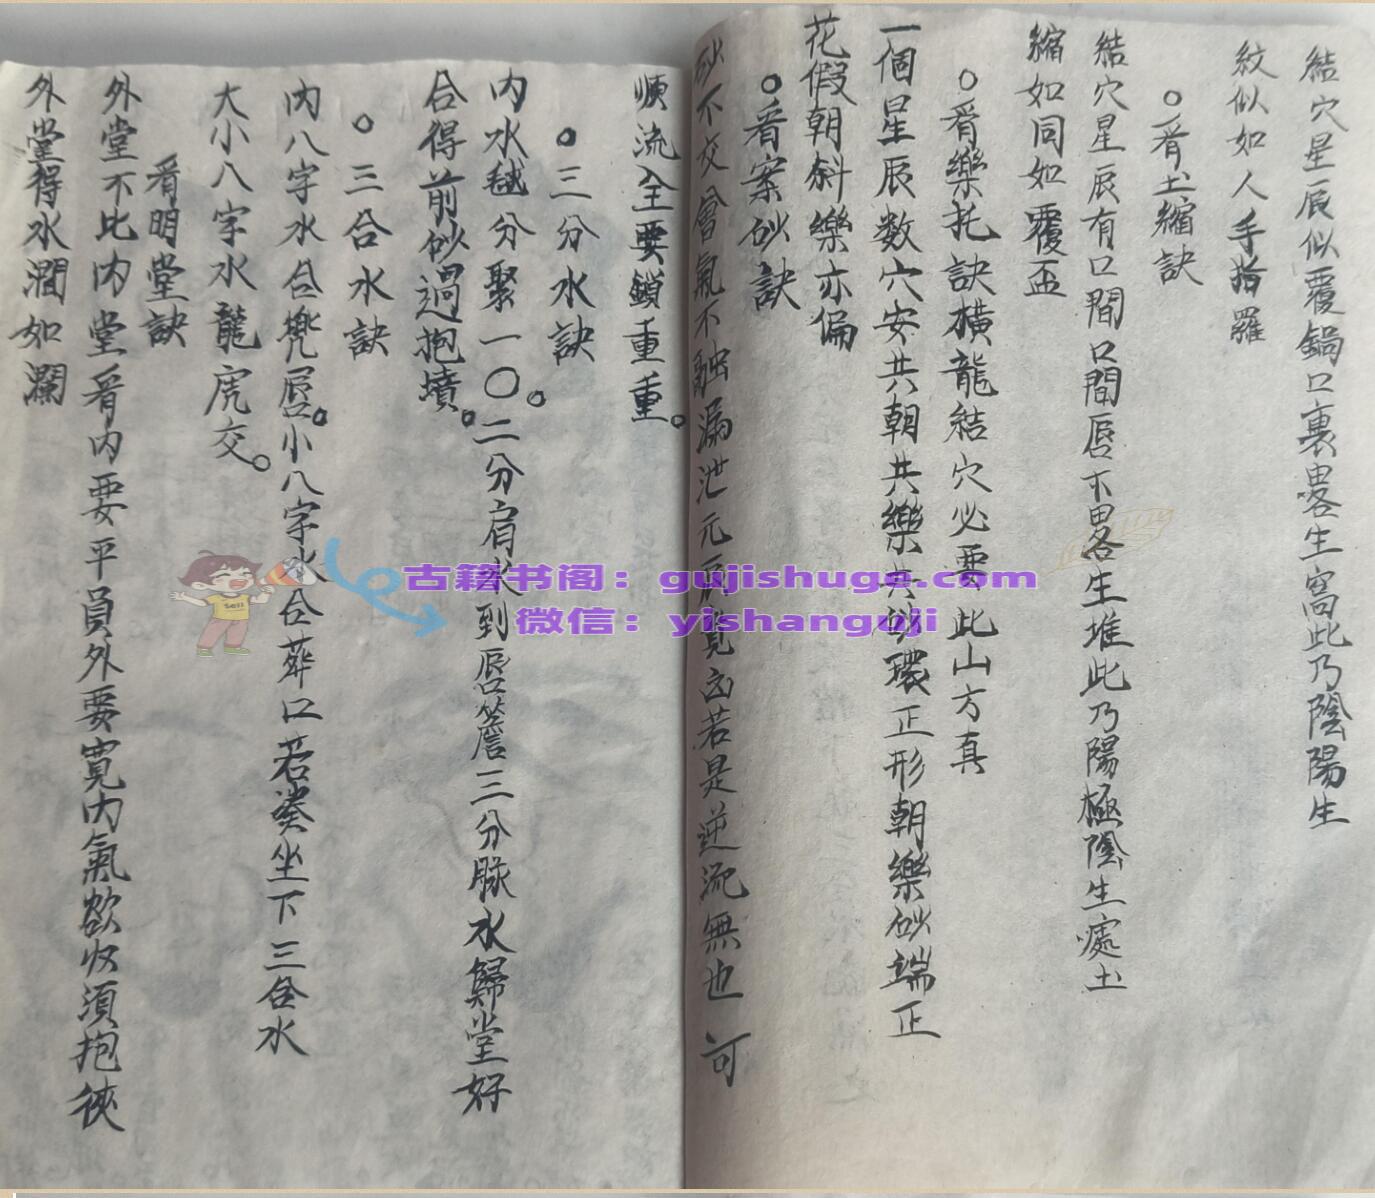 結穴星辰似覆鍋口裏畧生窩此乃陰陽生
紋似如人手指羅
○看土縮訣
結穴星辰有口間口間唇下畧生堆此乃陽極陰生處土
縮如同如覆盃
○看樂托訣橫龍結穴必要此山方真
一個星辰数穴安共朝共樂共砂環正形朝樂砂端正
花假朝斜樂亦偏
○看案砂訣
砂不交會氣不融漏泄元辰見凶若是逆流無也可
順流全要鎖重重。
○三分水訣
内水毬分聚一〇。二分肩水到唇簷三分脉水歸堂好
合得前砂過抱墳。
○三合水訣
内八字水合兠唇。小八字水合葬口若葵坐下三合水
大小八字水龍虎交。
看明堂訣
外堂不比内堂看内要平員外要寬内氣欲收須抱狹
外堂得水濶如瀾
古籍书阁：gujishuge.com
微信：yishanguji